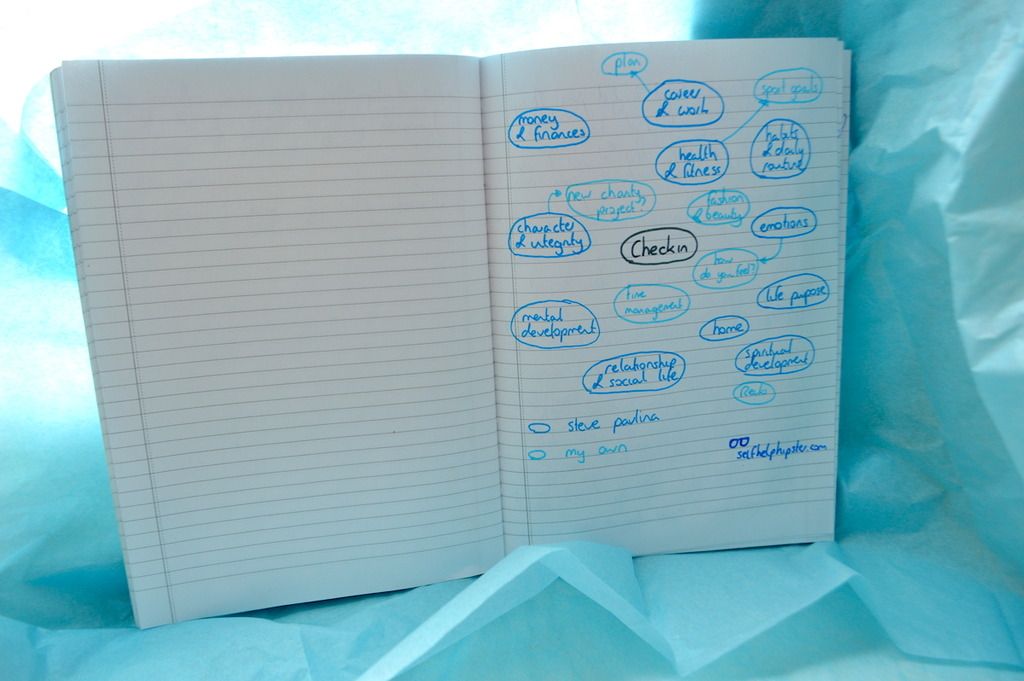 plan
career
& work
sport goals
money
& finances
health
& fitness
habits
& daily
routine
new charity
project?
fashion
& beauty
character
& integrity
Checkin
emotions
how
do you feel?
time
management
life purpose
mental
development
home
relationship
& social life
spiritual
development
steve pavlina
my own
selfhelphipster.com